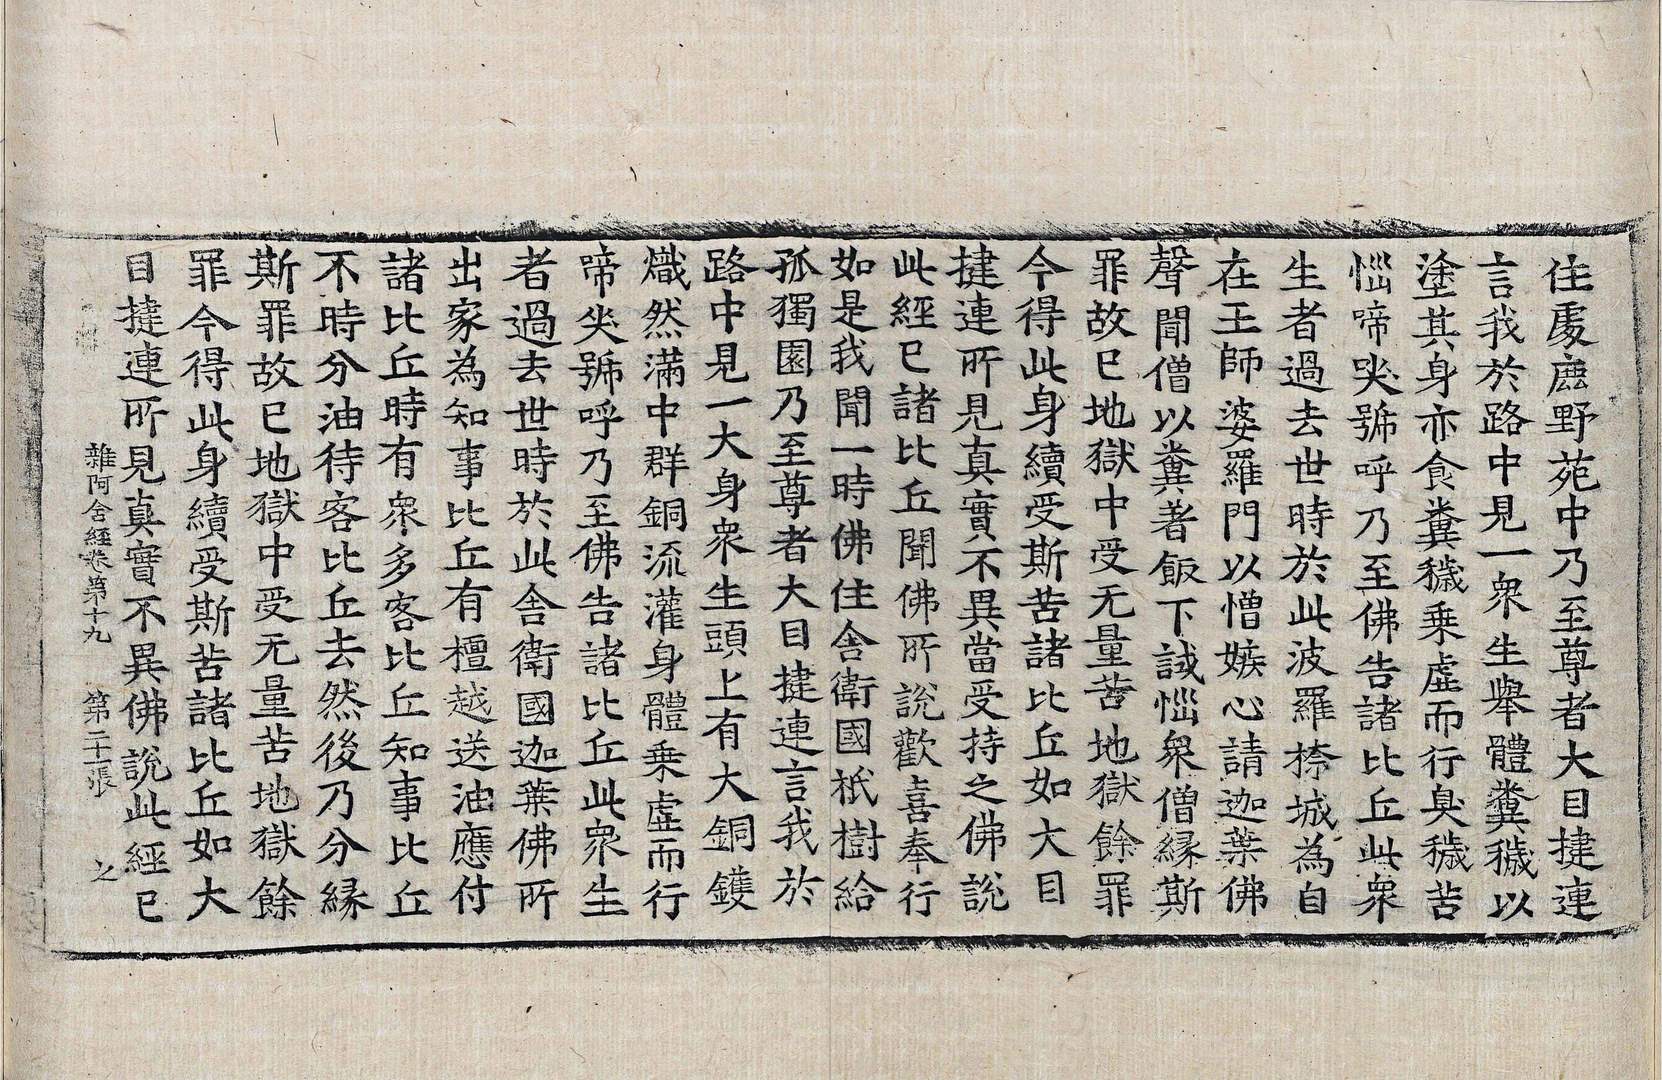 住處鹿野苑中乃至尊者大目揵連
言我於路中見一衆生舉體糞穢以
塗其身亦食糞穢乗虛而行臭穢苦
惱啼哭號呼乃至佛告諸比丘此衆
生者過去世時於此波羅㮈城為自
在王師婆羅門以憎嫉心請迦葉佛
聲聞僧以糞著飯下試惱衆僧緣斯
罪故已地獄中受无量苦地獄餘罪
今得此身續受斯苦諸比丘如大目
揵連所見真實不異當受持之佛說
此經已諸比丘聞佛所說歡喜奉行
如是我聞一時佛住舍衛國祇樹給
孤獨園乃至尊者大目揵連言我於
路中見一大身衆生頭上有大銅鑊
熾然滿中群銅流灌身體乗虛而行
啼哭號呼乃至佛告諸比丘此衆生
者過去世時於此舍衛國迦葉佛所
出家為知事比丘有檀越送油應付
諸比丘時有衆多客比丘知事比丘
不時分油待客比丘去然後乃分緣
斯罪故已地獄中受无量苦地獄餘
罪今得此身續受斯苦諸比丘如大
目揵連所見真實不異佛說此經已
雜阿含經卷第十九 第二十一張 之